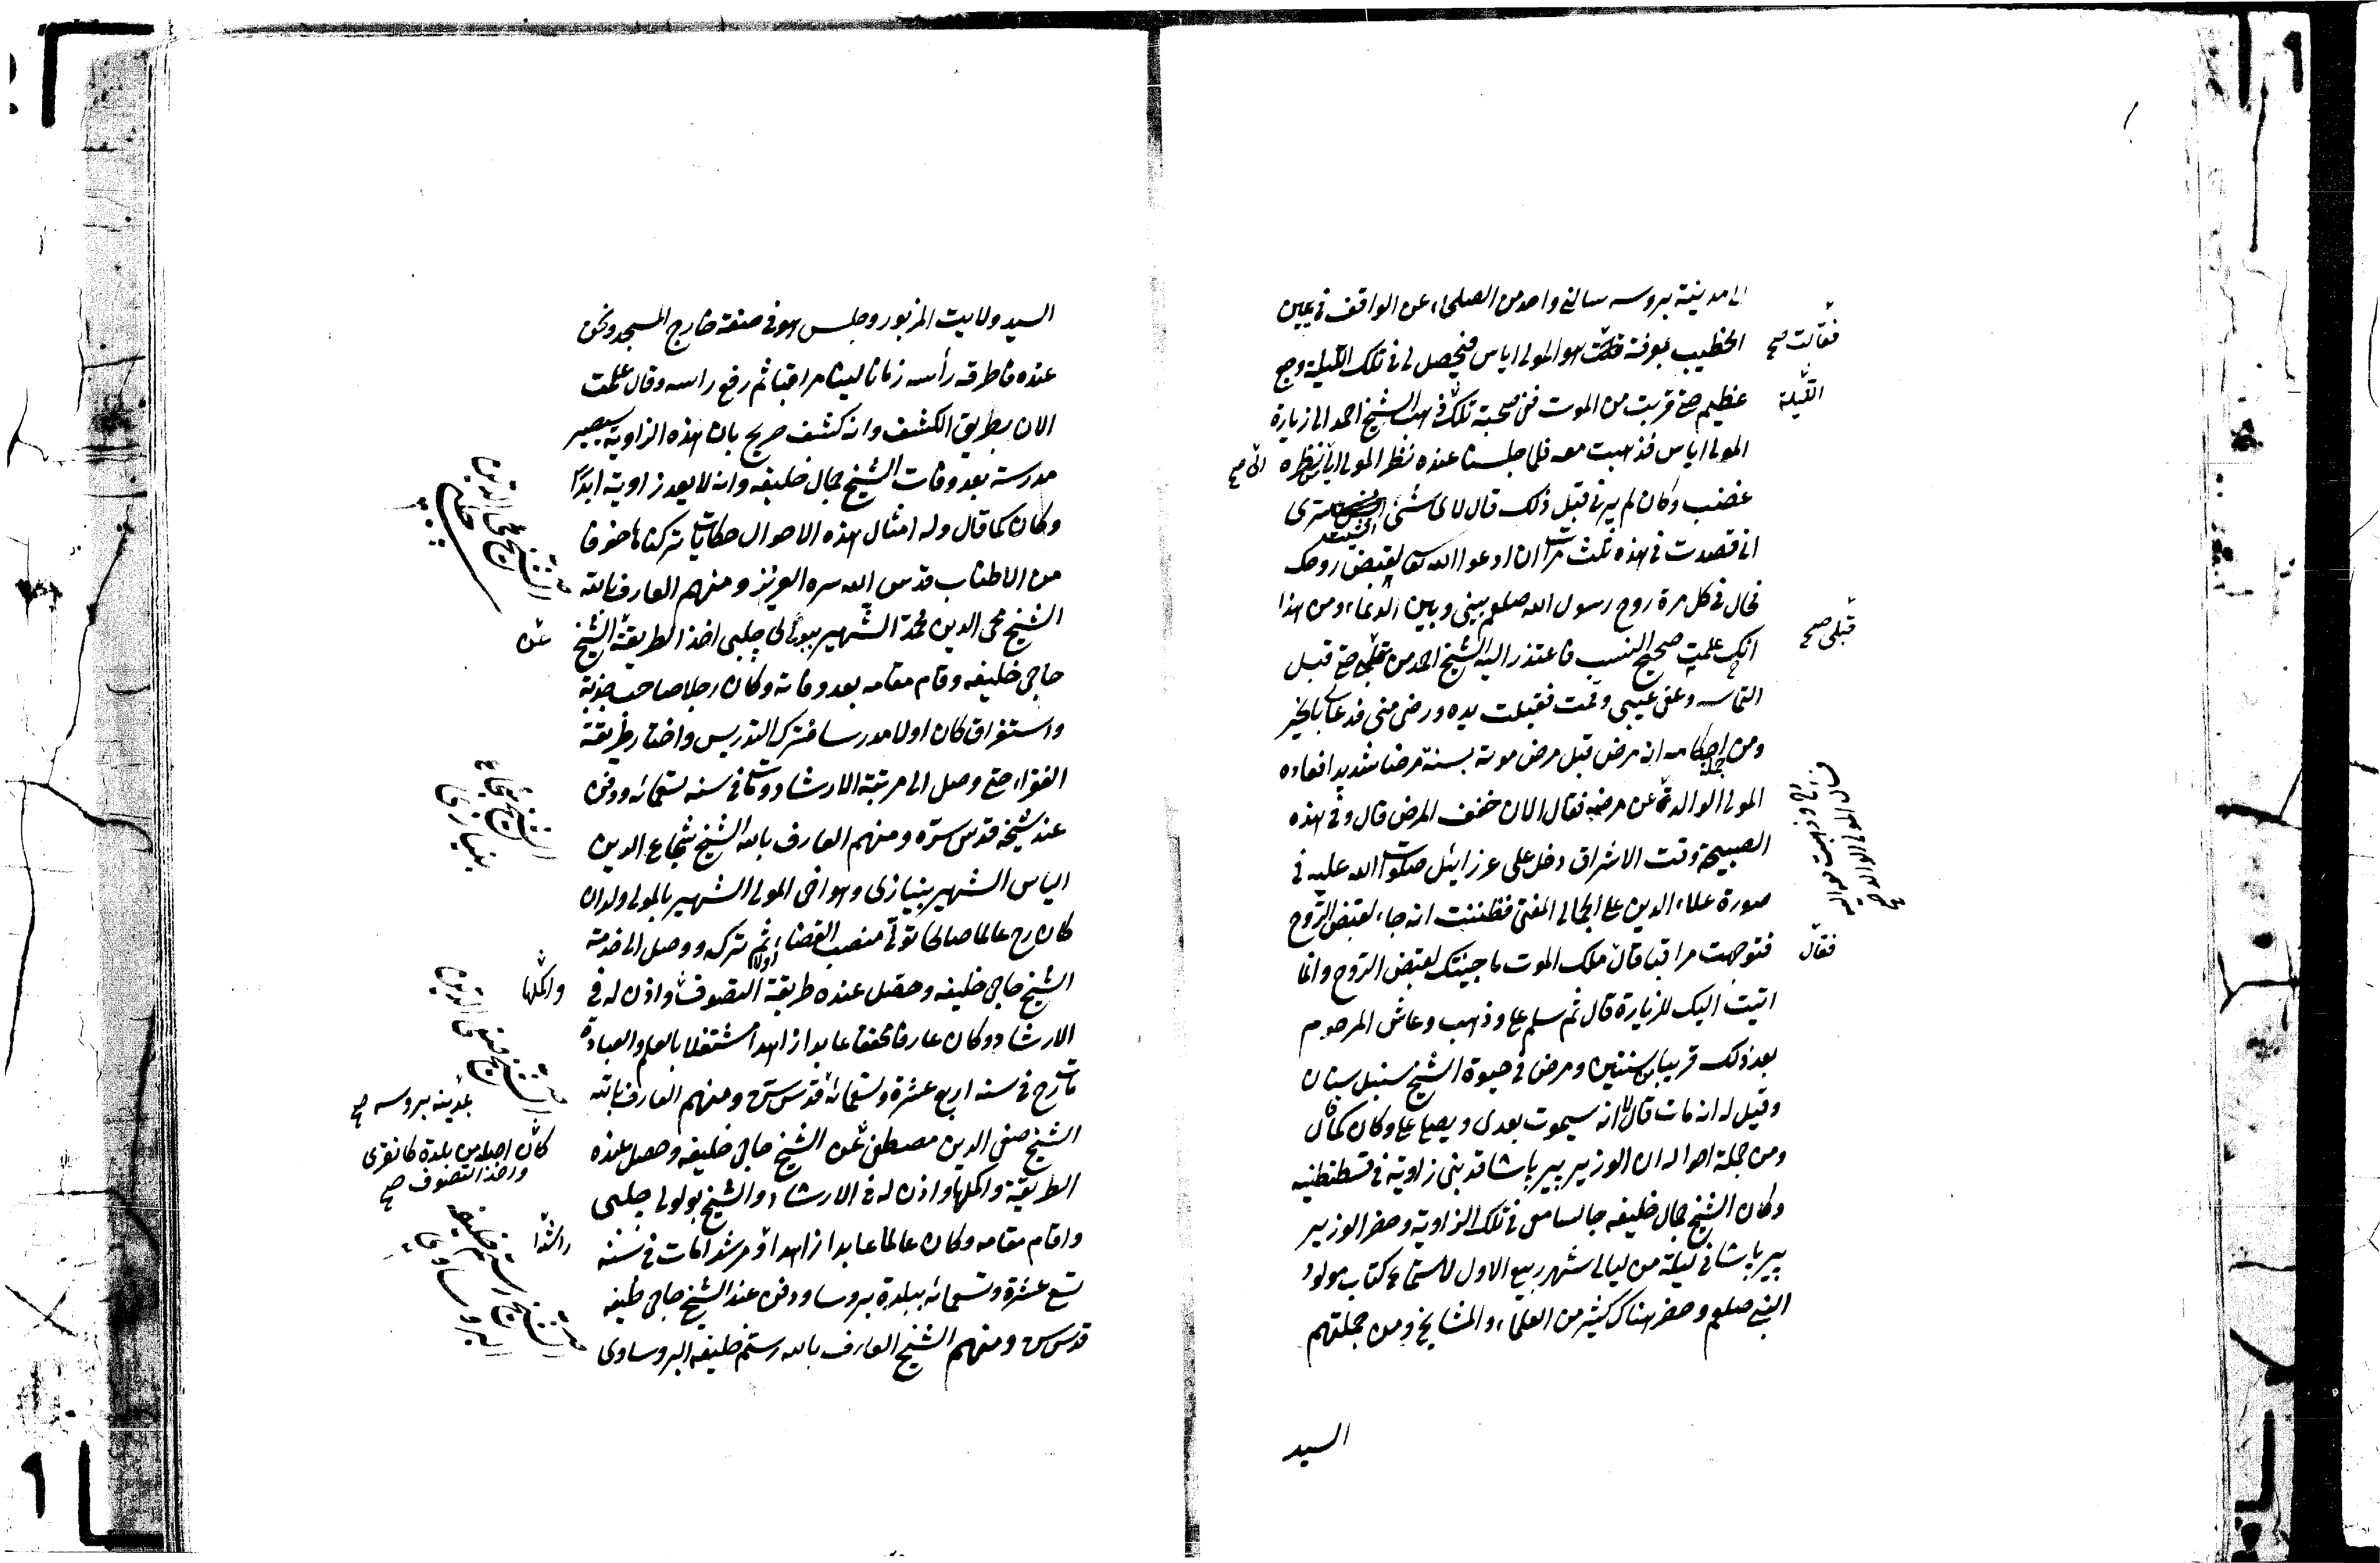 الى مدينة بروسه سالنى واحد من الصلحاء عن الواقف فى يمين
الخطيب بعرفة فقلت هو المولى اياس فيحصل لى فى تلك الليلة وجع
عظيم حتى قربت من الموت ففى صبحة تلك ذهب الشيخ احمد الى زيارة
المولى اياس فذهبت معه فلما جلسنا عنده نظر المولى اياس نظرة
غضب وكان لم يرنى قبل ذلك قال لاى شئ سرى
انى قصدت فى هذه ثلث مرات ان ادعو الله تعالى لقبض روحك
فحال فى كل مرة روح رسول الله صلعم بينى وبين الدعاء ومن هذا
انك علمت صحيح النسب فاعتذر اليه الشيخ احمد من حتى قبل
التماسه وعفى عيبى وقمت فقبلت يده ورضى منى فدعا لى بالخير
ومن جملة احكامه انه مرض قبل مرض موته بسنة مرضا شديدا فعاده
المولى الوالد عن مرضه فقال الان خفف المرض قال وفى هذه
الصبيحة وقت الاشراق دخل على عزرائيل صلوات الله عليه فى
صورة علاء الدين على الجمالى المفتى فظننت انه جاء لقبض الروح
فتوجهت مراقبا قال ملك الموت ما جيئتك لقبض الروح وانما
اتيت اليك للزيارة قال ثم سلم على وذهب وعاش المرحوم
بعد ذلك قريبا من سنتين ومرض فى حيوة الشيخ سنبل سنان
وقيل له انه مات قال لا انه سيموت بعدى ويصلى على وكان كما قال
ومن جملة احواله ان الوزير پير پاشا قد بنى زاوية فى قسطنطنيه
وكان الشيخ جمال خليفه جالسا معى فى تلك الزاوية وحضر الوزير
پير پاشا فى ليلة من ليالى شهر ربيع الاول لاستماع كتاب مولود
النبى صلعم وحضر هناك كثير من العلماء والمشايخ ومن جملتهم
السيد
فقالت صح
الليلة
الى صح
قبلى صح
قال المولى الوالد
فقال
السيد ولايت المزبور وجلس هو فى صفة خارج المسجد ونحن
عنده فاطرقه رأسه زمانا لبيثا مراقبا ثم رفع راسه وقال علمت
الان بطريق الكشف وانه كشف صريح بان هذه الزاوية سيصير
مدرسة بعد وفات الشيخ جمال خليفه وانه لا يعد زاوية ابدا
وكان كما قال وله امثال هذه الاحوال حكايات تركناها خوفا
من الاطناب قدس الله سره العزيز ومنهم العارف بالله
الشيخ محى الدين محمد الشهير ببولى چلبى اخذ الطريقة الشيخ
حاجى خليفه وقام مقامه بعد وفاته وكان رجلا صاحب جذبة
واستغراق كان اولا مدرسا فترك التدريس واختار طريقة
الفقراء حتى وصل الى مرتبة الارشاد ومات فى سنه تسعمائه ودفن
عند شيخه قدس سره ومنهم العارف بالله الشيخ شجاع الدين
الياس الشهير بنيازى وهو اخى المولى الشهير بالمولى ولدان
كان رح عالما صالحا تولى منصب القضاء اولا ثم تركه ووصل الى خدمة
الشيخ حاجى خليفه وحصل عنده طريقة التصوف واذن له فى
الارشاد وكان عارفا محققا عابدا زاهدا مشتغلا بالعلم والعبادة
مات رح فى سنه اربع عشرة وتسعمائه قدس سره ومنهم العارف بالله
الشيخ صفى الدين مصطفى عن الشيخ حاجى خليفه وحصل عنده
الطريقة واكملها واذن له فى الارشاد والشيخ بولى چلبى
واقام مقامه وكان عالما عابدا زاهدا ومرشدا مات فى سنه
تسع عشرة وتسعمائه ببلدة بروسا ودفن عند الشيخ حاجى خليفه
قدس س ومنهم الشيخ العارف بالله رستم خليفه البروساوى
الشيخ محى الدين
عن
الشيخ شجاع
نيازى
واكملها
الشيخ صفى الدين
بمدينه بروسه صح
كان اصله من بلدة كانقرى
واخذ التصوف صح
راشدا
الشيخ رستم خليفه
البروساوى